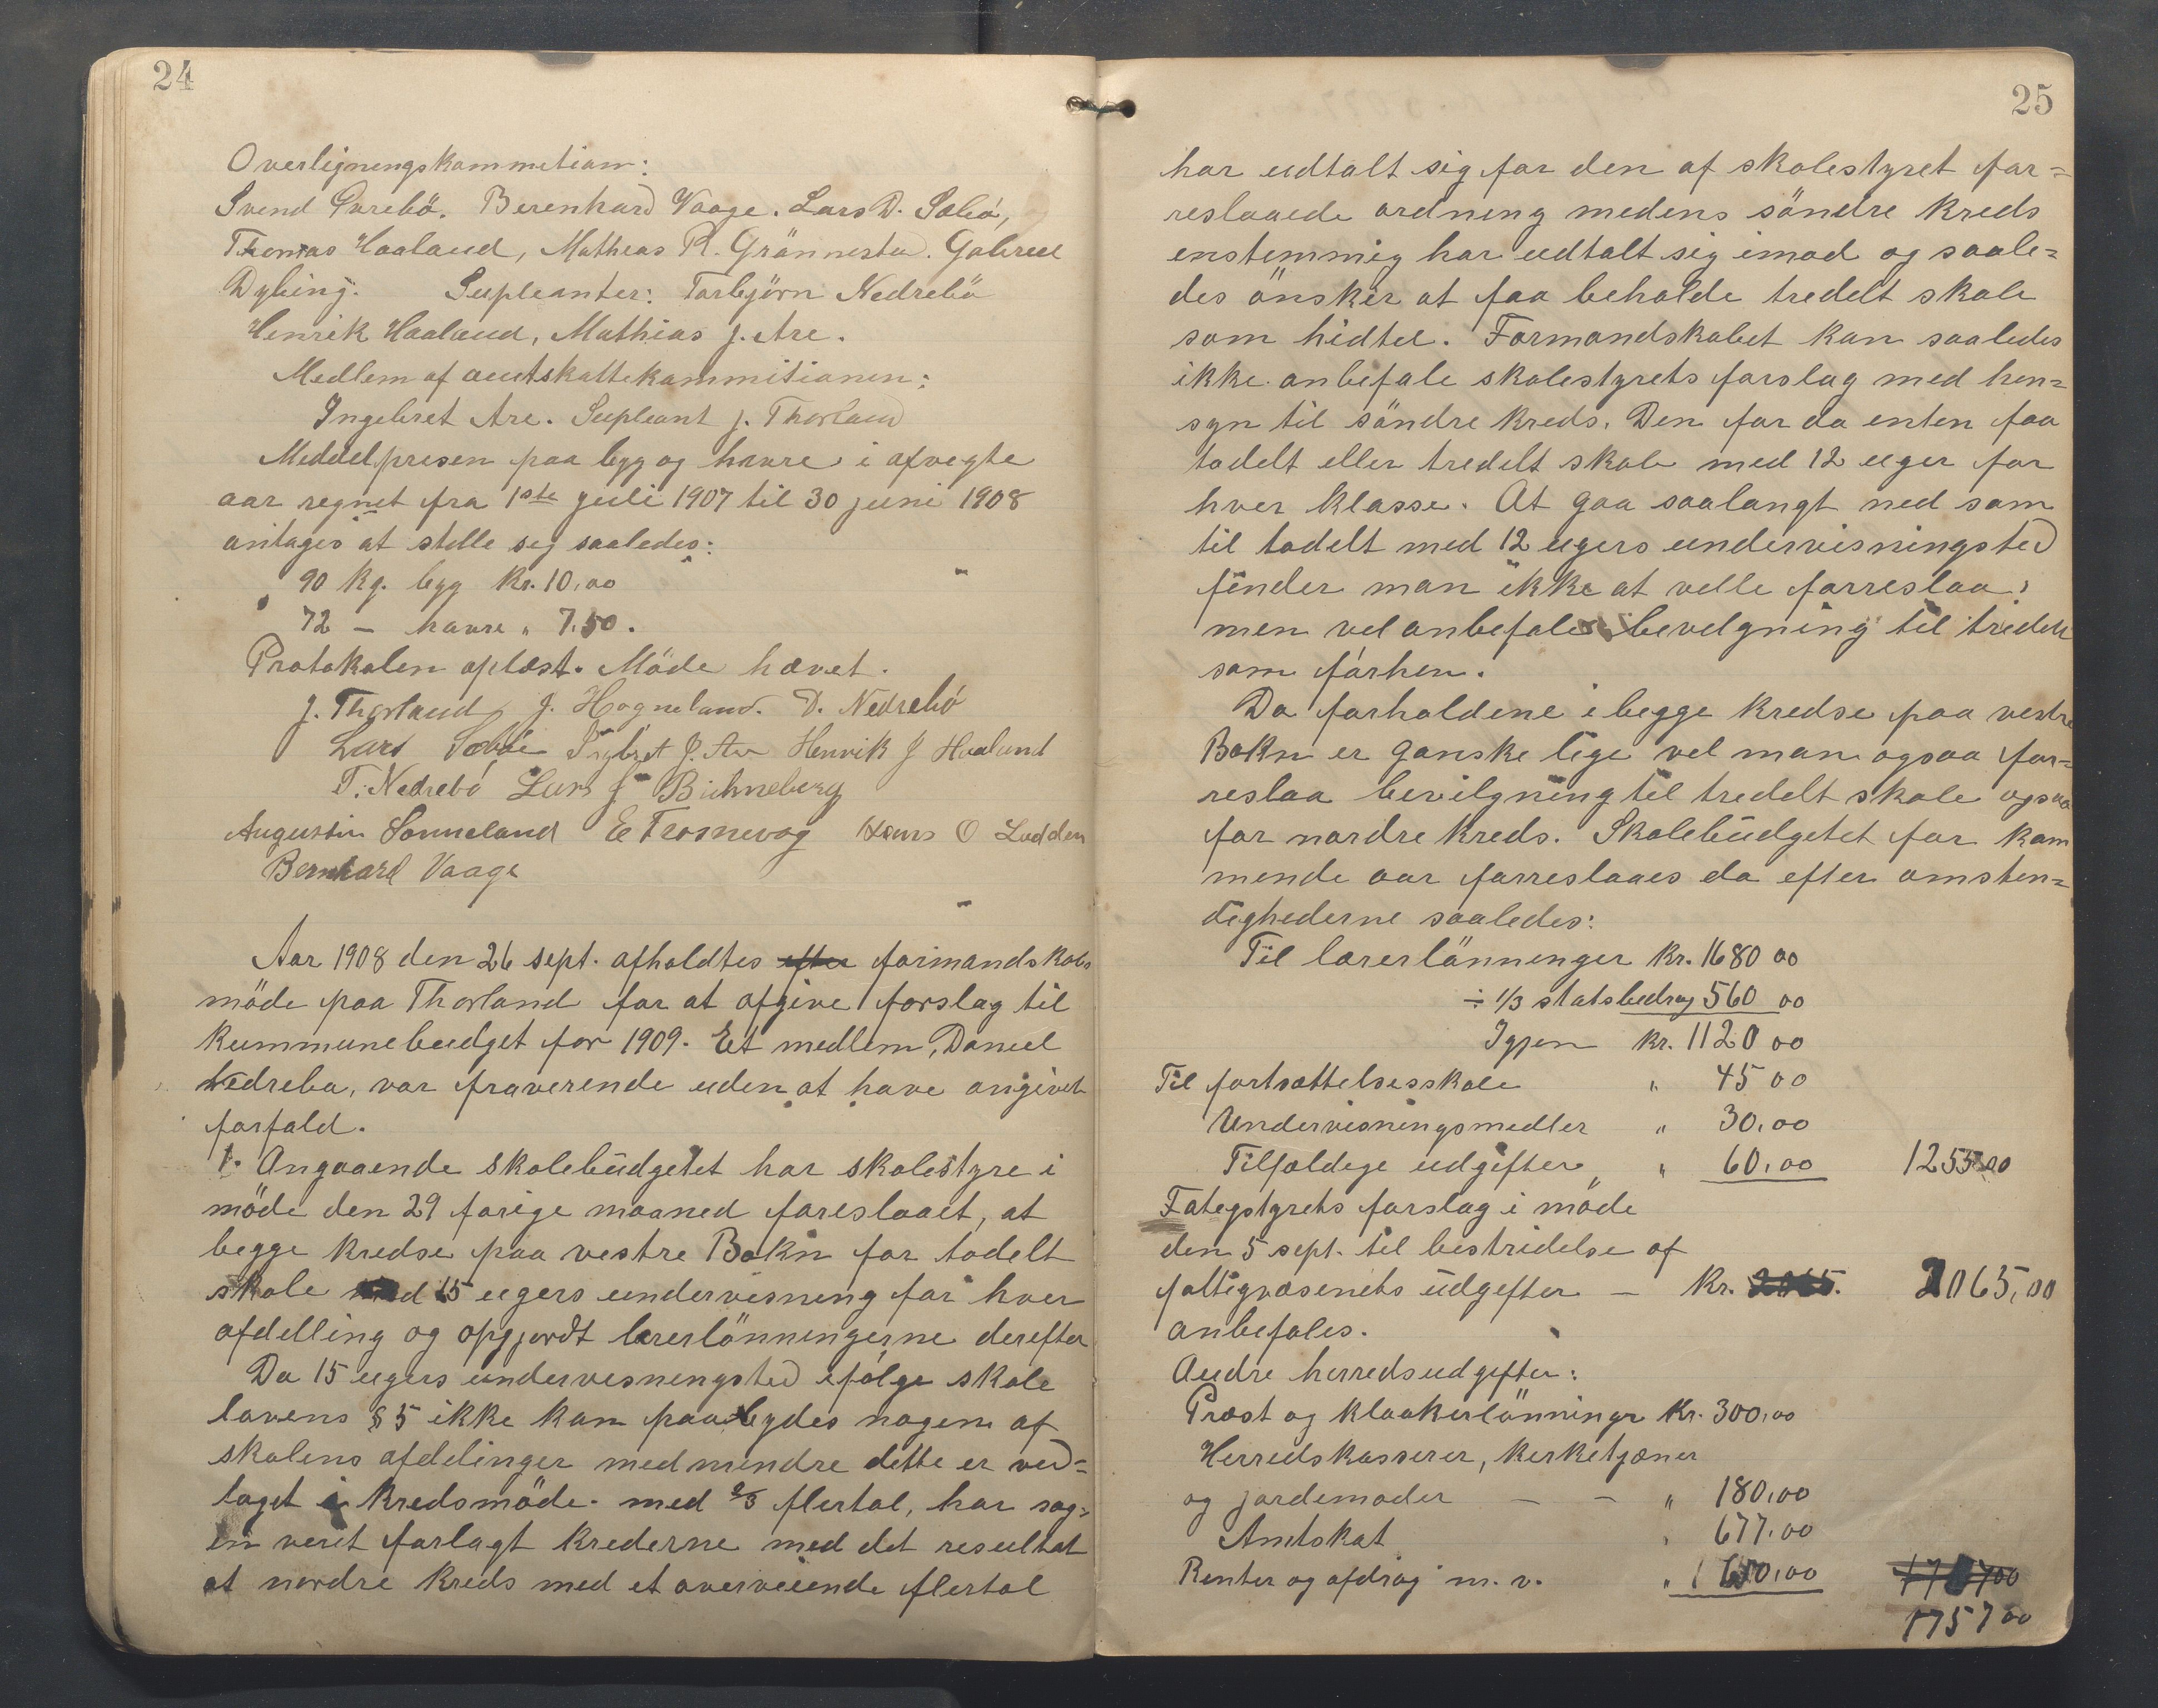 24
Overligningskommetion:
Svend Øvrebö. Berenhard Vaage. Lars D. Sæbö,
Thomas Haaland, Mathias R. Grönnestad. Gabriel
Dybing. Supleanter: Torbjörn Nedrebö
Henrik Haaland, Mathias J. Are.
Medlem af amtskattekommitionen:
Ingebret Are. Supleant J. Thorland
Meddelprisen paa byg og havre i afvegte
aar regnet fra 1ste juli 1907 til 30 juni 1908
antages at stelle seg saaledes:
90 kg. byg Kr. 10,00
72 — havre " 7.50.
Protokolen oplæst. Möde hævet.
J. Thorland J. Hogneland. D. Nedrebö
Lars Sæbö Ingbret J. Are Henrik J Haaland
T. Nedrebö Lars J Bühneberg
Augustin Sonneland E Trosnevog Hans O Lodden
Bernhard Vaage
Aar 1908 den 26 sept. afholdtes efter formandskabs
möde paa Thorland for at afgive forslag til
kummunebudget for 1909. Et medlem, Daniel
Nedrebø, var fraverende uden at have angivet
forfald.
1. Angaaende skolebüdgetet har skolestyre i
möde den 29 forige maaned foreslaaet, at
begge kredse paa vestre Bokn får todelt
skole med 15 ugers undervisning før hver
afdelling og opgjordt lærerlönningerne derefter
Da 15 ugers undervesnengsted ifölge skole
lovens § 5 ikke kan paabydes nogen af
skolens afdelinger medmindre dette er ved=
taget i kredsmöde. med 2/3 flertal, har sag=
en veret forlagt krederne med det resultat
at nordre kreds med et overveiende flertal
25
har udtalt sig for den af skolestyret for=
reslaaede ordning medens söndre kreds
enstemmig har udtalt sig imod og saale=
des önsker at faa beholde tredelt skole
som hidtel. Formandskabet kan saaledes
ikke anbefale skolestyrets forslag med hen=
syn til söndre kreds. Den får da enten faa
todelt eller tredelt skole med 12 uger for
hver klasse. At gaa saalangt ned som
til todelt med 12 ugers undervisningsted
finder man ikke at velle forreslaa;
men vel anbefale bevelgning til tredelt
som förhen.
Da forholdene i begge kredse paa vestre
Bokn er ganske lige vel man ogsaa for=
reslaa bevilgning til tredelt skole ogsaa
for nordre kreds. Skolebüdgetet for kom
mende aar forreslaaes da efter omsten=
dighederne saaledes:
Til lærerlönninger Kr. 1680 00
÷ 1/3 statsbedrag 560 00
Igjen Kr. 1120 00
Til fortsættelsesskole " 45 00
Undervisningsmedler " 30,00
Tilfældige udgifter " 60,00 1255 00
Fategstyrets forslag i möde
den 5 sept. til bestridelse af
fattigvæsenets üdgifter — Kr. 2065. 2065,00
anbefales.
Andre herredsudgifter:
Præst og klokkerlönninger Kr. 300,00
Herredskasserer, kerketjæner
og jordemoder — — " 180,00
Amtskat " 677,00
Renter og afdrag m. v. " 600,00
1757 00